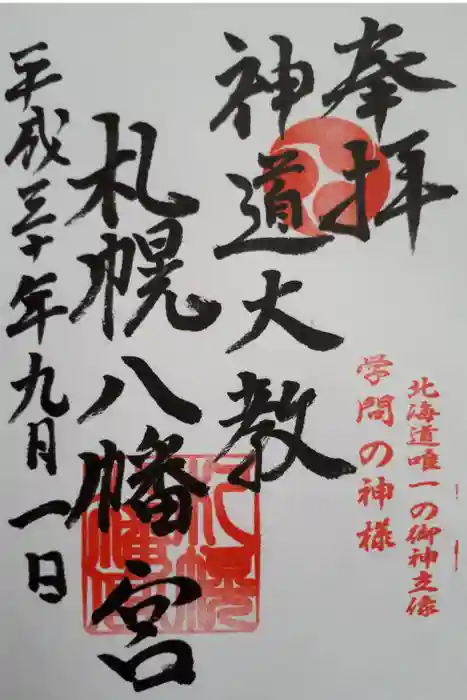 奉拝
北海道唯一の御神立像
学問の神様
神道大教
札幌八幡宮
平成三十年九月一日